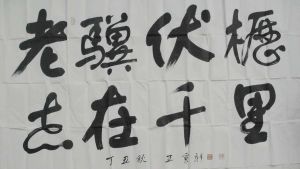 老骥伏櫪
志在千里
丁丑秋